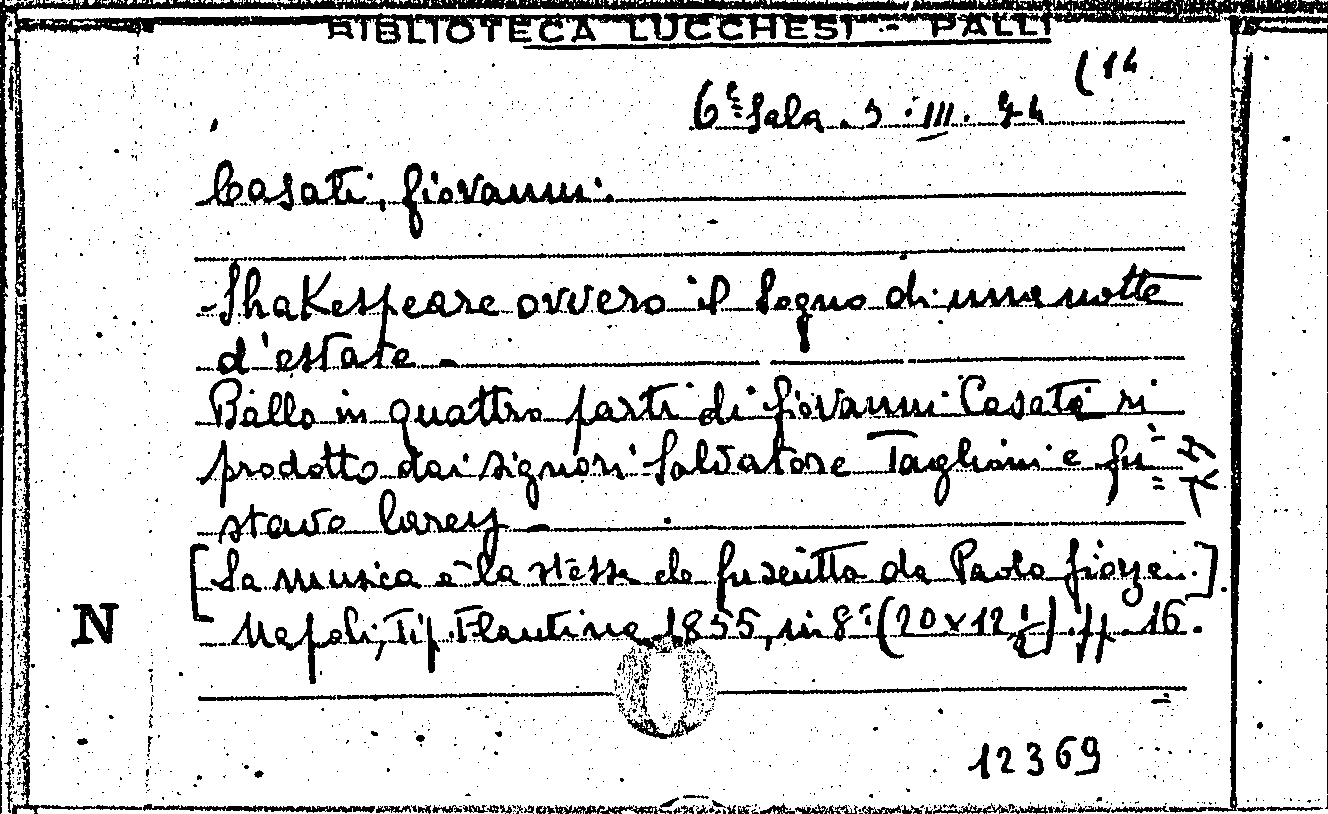 BIBLIOTECA LUCCHESI - PALLI
(14
6ª Sala. 3. III. 74
Casati, Giovanni.
- Shakespeare ovvero il Sogno di una notte
d'estate -
Ballo in quattro parti di Giovanni Casati ri
prodotto dai signori Salvatore Taglioni e Gu
stavo Carey -
[La musica è la stessa che fu scritta da Paolo Giorza.]
Napoli, Tip. Flautina 1855, in 8º (20 x 12 1/2) pp. 16.
N
12369